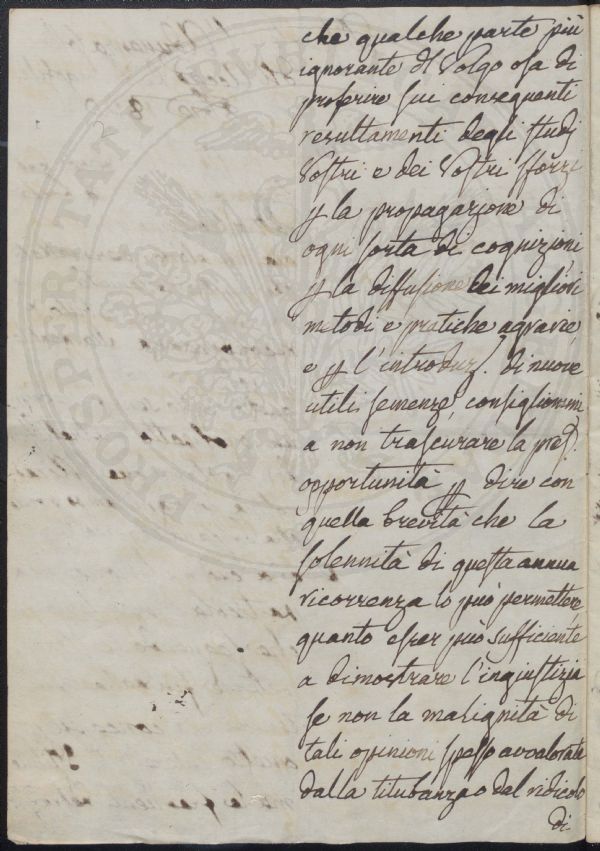 che qualche parte più
ignorante dl Volgo osa di
proferire sui conseguenti
resultamenti degli studj
Vostri e dei Vostri sforzi
p la propagazione di
ogni sorta di cognizioni,
p la diffusione dei migliori
metodi e pratiche agrarie,
e p l'introduz. di nuove
utili semenze, consiglionmi
a non trascurare la pres.
opportunità p dire con
quella brevità che la
solennità di questa annua
ricorrenza lo può permettere,
quanto esser può sufficiente
a dimostrare l'ingiustizia
se non la malignità di
tali opinioni spesso avvalorate
dalla titubanza o dal ridicolo
di
PROSPERITATI